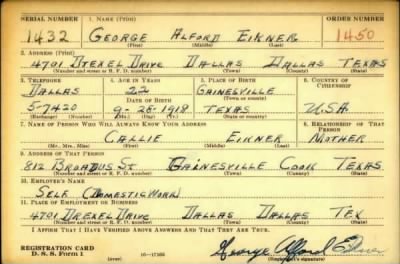 SERIAL NUMBER 1. NAME (Print) ORDER NUMBER
1432 GEORGE ALFORD EIKNER 1450
(First) (Middle) (Last)
2. ADDRESS (Print)
4701 DREXEL DRIVE DALLAS DALLAS TEXAS
(Number and street or R. F. D. number) (Town) (County) (State)
3. TELEPHONE 4. AGE IN YEARS 5. PLACE OF BIRTH 6. COUNTRY OF CITIZENSHIP
DALLAS 22 GAINESVILLE
DATE OF BIRTH (Town or county)
5-7420 9-28-1918 TEXAS U.S.A.
(Exchange) (Number) (Mo.) (Day) (Yr.) (State or country)
7. NAME OF PERSON WHO WILL ALWAYS KNOW YOUR ADDRESS 8. RELATIONSHIP OF THAT PERSON
CALLIE EIKNER MOTHER
(Mr., Mrs., Miss) (First) (Middle) (Last)
9. ADDRESS OF THAT PERSON
812 BROADUS ST GAINESVILLE COOK TEXAS
(Number and street or R. F. D. number) (Town) (County) (State)
10. EMPLOYER'S NAME
SELF (DOMESTIC WORK)
11. PLACE OF EMPLOYMENT OR BUSINESS
4701 DREXEL DRIVE DALLAS DALLAS TEX
(Number and street or R. F. D. number) (Town) (County) (State)
I AFFIRM THAT I HAVE VERIFIED ABOVE ANSWERS AND THAT THEY ARE TRUE.
REGISTRATION CARD
D. S. S. Form 1 (over) 16—17105 George Alford Eikner
(Registrant's signature)